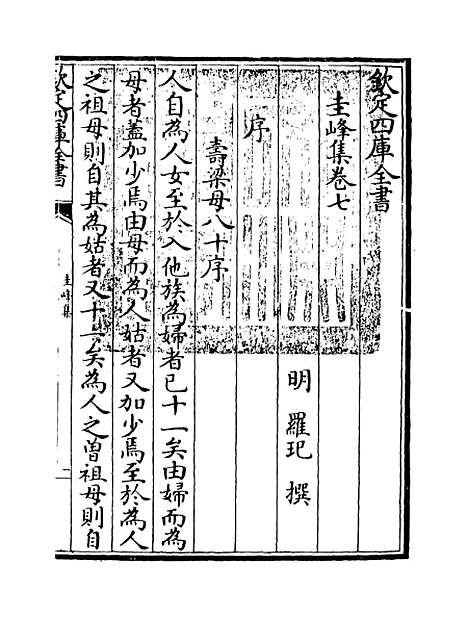 欽定四庫全書
圭峰集卷七
明 羅玘 撰
序
壽梁母八十序
人自為人女至於入他族為婦者已十一矣由婦而為
母者蓋加少焉由母而為人姑者又加少焉至於為人
之祖母則自其為姑者又十一矣為人之曾祖母則自
欽定四庫全書
圭峰集